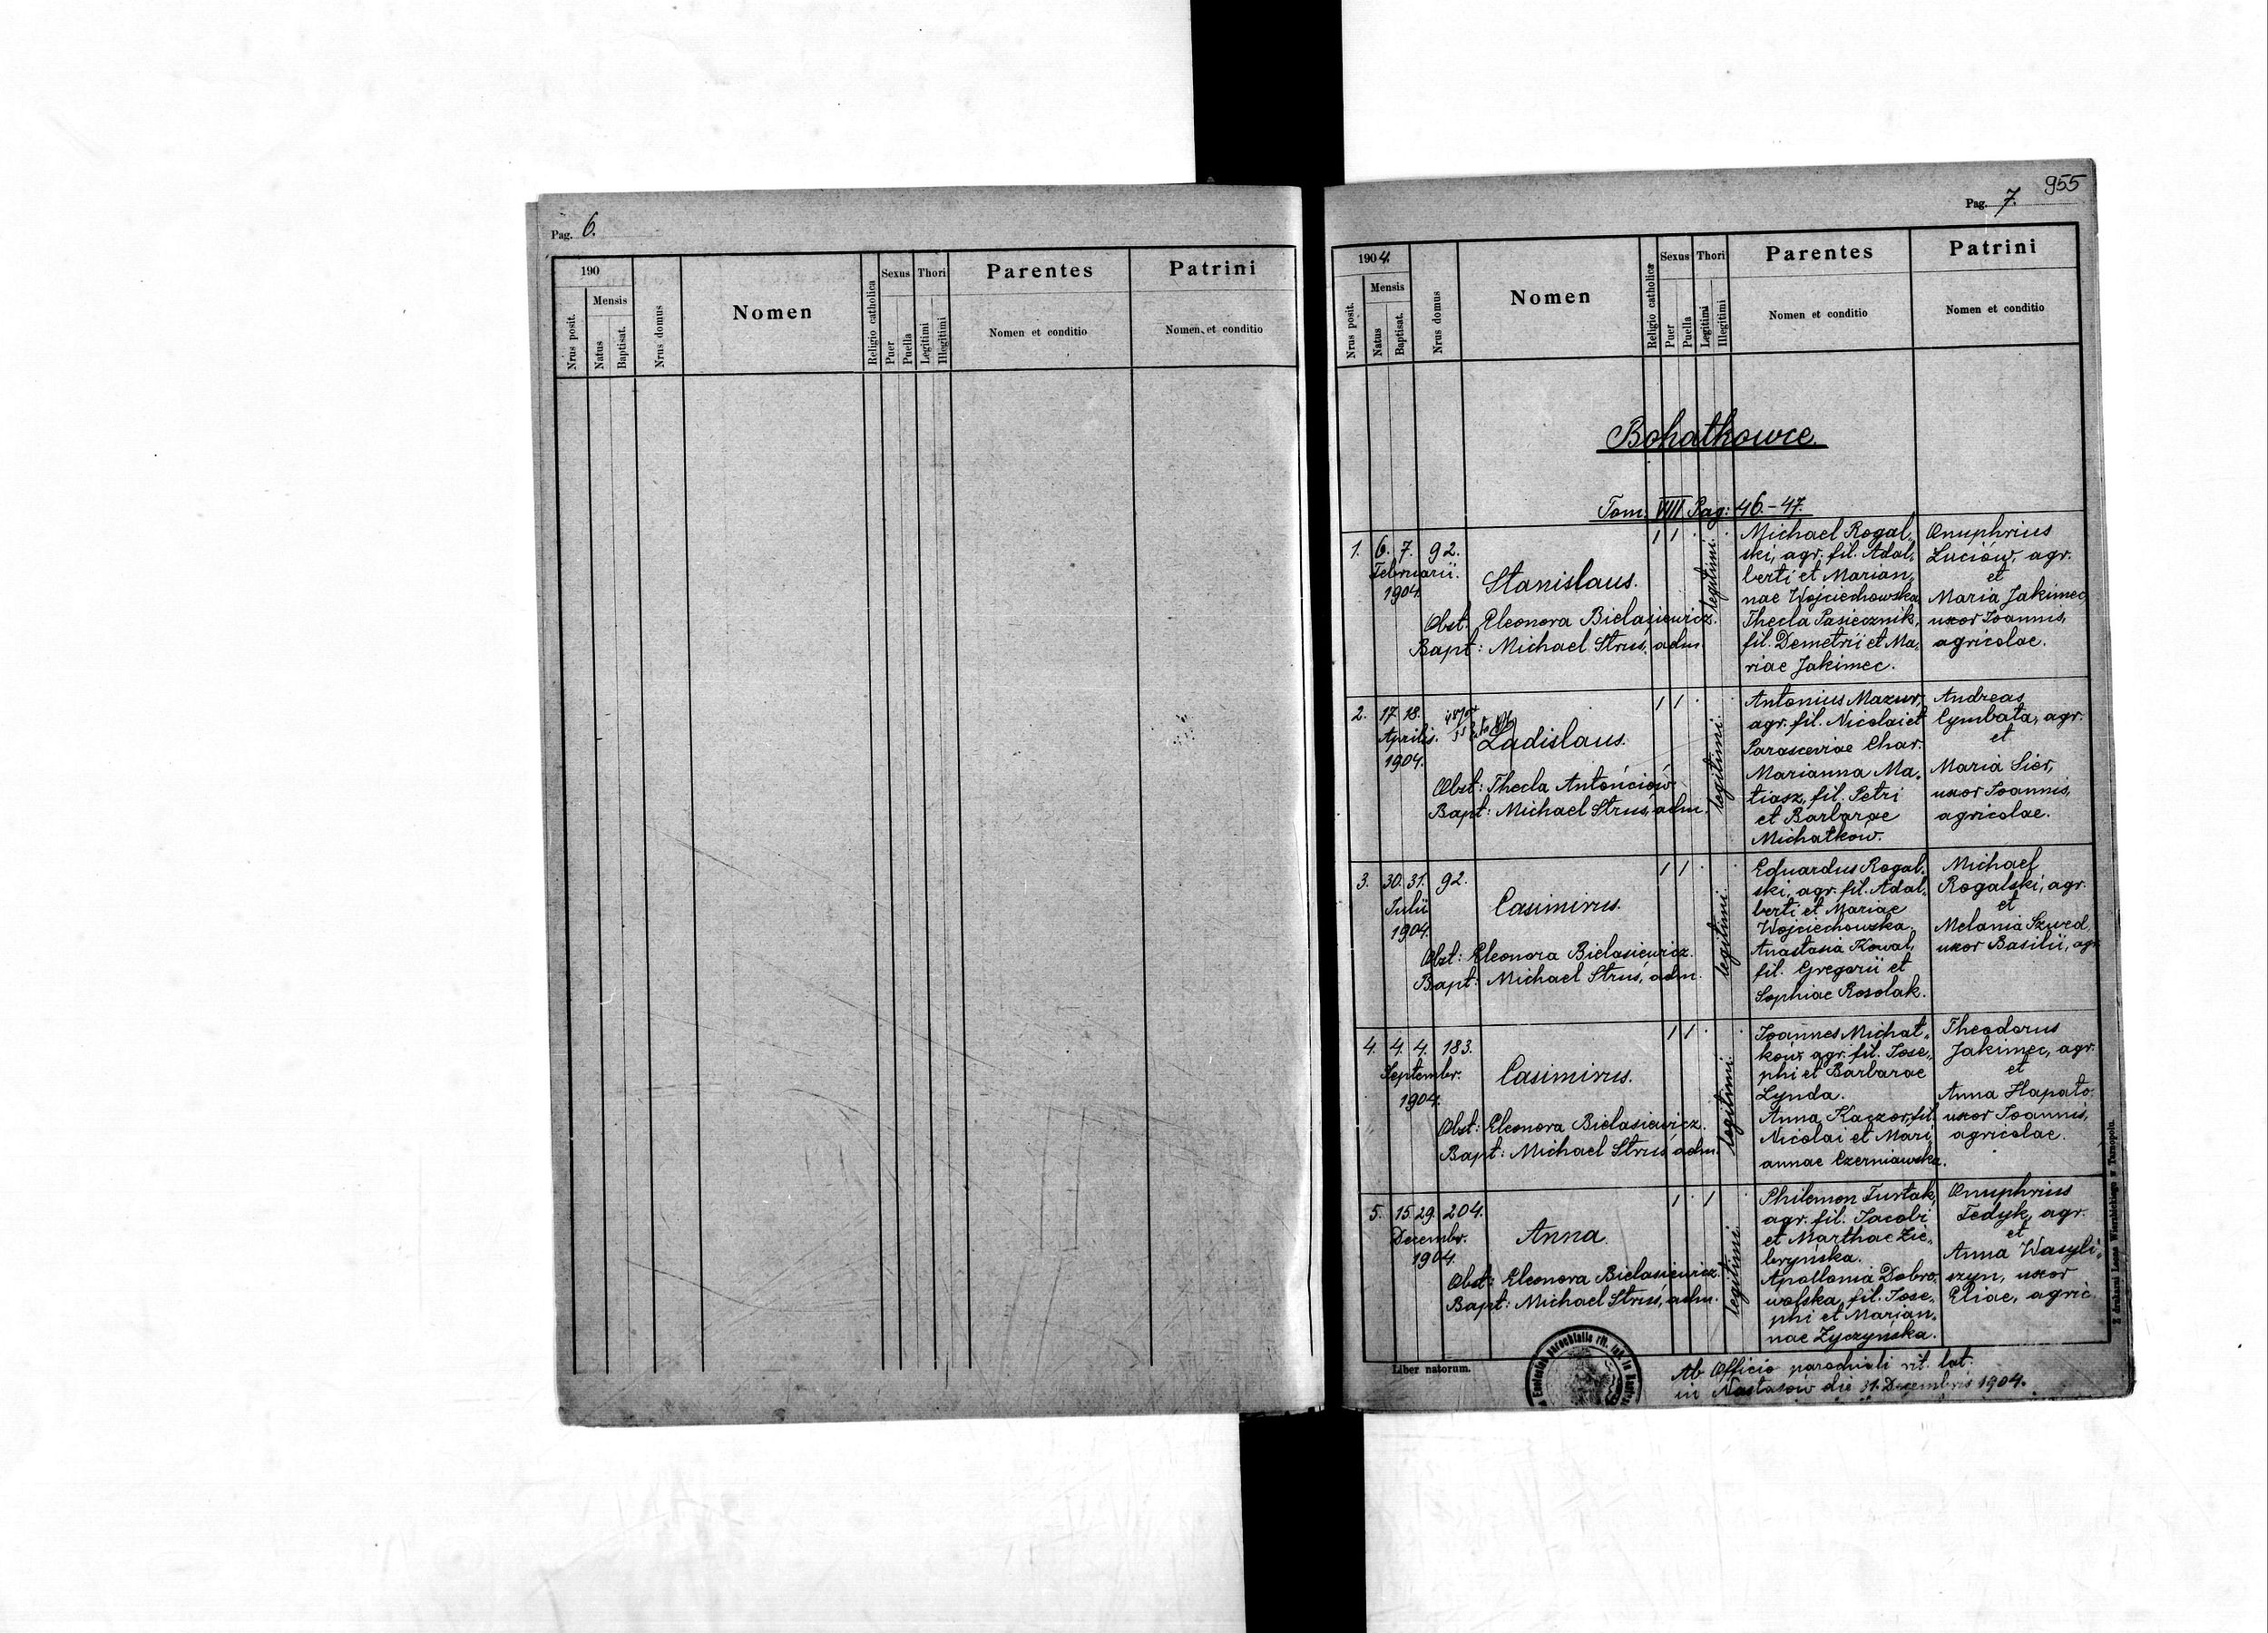 Pag. 6.
190
Mensis
Nrus posit.
Natus
Baptisat.
Nrus domus
Nomen
Religio catholica
Sexus
Puer
Puella
Thori
Legitimi
Illegitimi
Parentes
Nomen et conditio
Patrini
Nomen et conditio
955
Pag. 7.
1904.
Mensis
Nrus posit.
Natus
Baptisat.
Nrus domus
Nomen
Religio catholica
Sexus
Puer
Puella
Thori
Legitimi
Illegitimi
Parentes
Nomen et conditio
Patrini
Nomen et conditio
Bohatkowce.
Tom. VIII Pag: 46.-47.
1. 6. 7. 92.
Februarii.
1904.
Stanislaus.
Obst: Eleonora Bielasiewicz.
Bapt: Michael Struś, adm.
legitimi.
Michael Rogal-
ski, agr. fil. Adal-
berti et Marian-
nae Wojciechowska
Thecla Pasiecznik,
fil. Demetrii et Ma-
riae Jakimec.
Onuphrius
Luciów, agr.
et
Maria Jakimec,
uxor Ioannis,
agricolae.
2. 17. 18.
Aprilis.
1904.
Ladislaus.
Obst: Thecla Antonciów.
Bapt: Michael Struś, adm.
legitimi.
Antonius Mazur,
agr. fil. Nicolai et
Parasceviae Char.
Marianna Ma-
tiasz, fil. Petri
et Barbarae
Michałków.
Andreas
Cymbała, agr.
et
Maria Sier,
uxor Ioannis,
agricolae.
3. 30. 31. 92.
Iulii
1904.
Casimirus.
Obst: Eleonora Bielasiewicz.
Bapt: Michael Struś, adm.
legitimi.
Eduardus Rogal-
ski, agr. fil. Adal-
berti et Mariae
Wojciechowska.
Anastasia Kowal,
fil. Gregorii et
Sophiae Rosolak.
Michael
Rogalski, agr.
et
Melania Szwed
uxor Basilii, agr.
4. 4. 4. 183.
Septembr.
1904.
Casimirus.
Obst: Eleonora Bielasiewicz.
Bapt: Michael Struś adm.
legitimi.
Ioannes Michał-
ków agr. fil. Iose-
phi et Barbarae
Lynda.
Anna Kaczor, fil.
Nicolai et Mari
annae Czerniawska.
Theodorus
Jakimec, agr.
et
Anna Hapato
uxor Ioannis,
agricolae.
5. 15. 29. 204.
Decembr.
1904.
Anna.
Obst: Eleonora Bielasiewicz.
Bapt: Michael Struś, adm.
legitimi.
Philemon Furtak,
agr. fil. Iacobi
et Marthae Zie-
bryńska.
Apollonia Dobro-
wolska, fil. Iose-
phi et Marian-
nae Zyczyńska.
Onuphrius
Fedyk, agr.
et
Anna Wasyli-
szyn, uxor
Eliae, agric.
Z drukarni Leona Wierzbickiego w Tarnopolu.
Liber natorum.
Ab Officio parochiali rit. lat.
in Nastasów die 31. Decembris 1904.